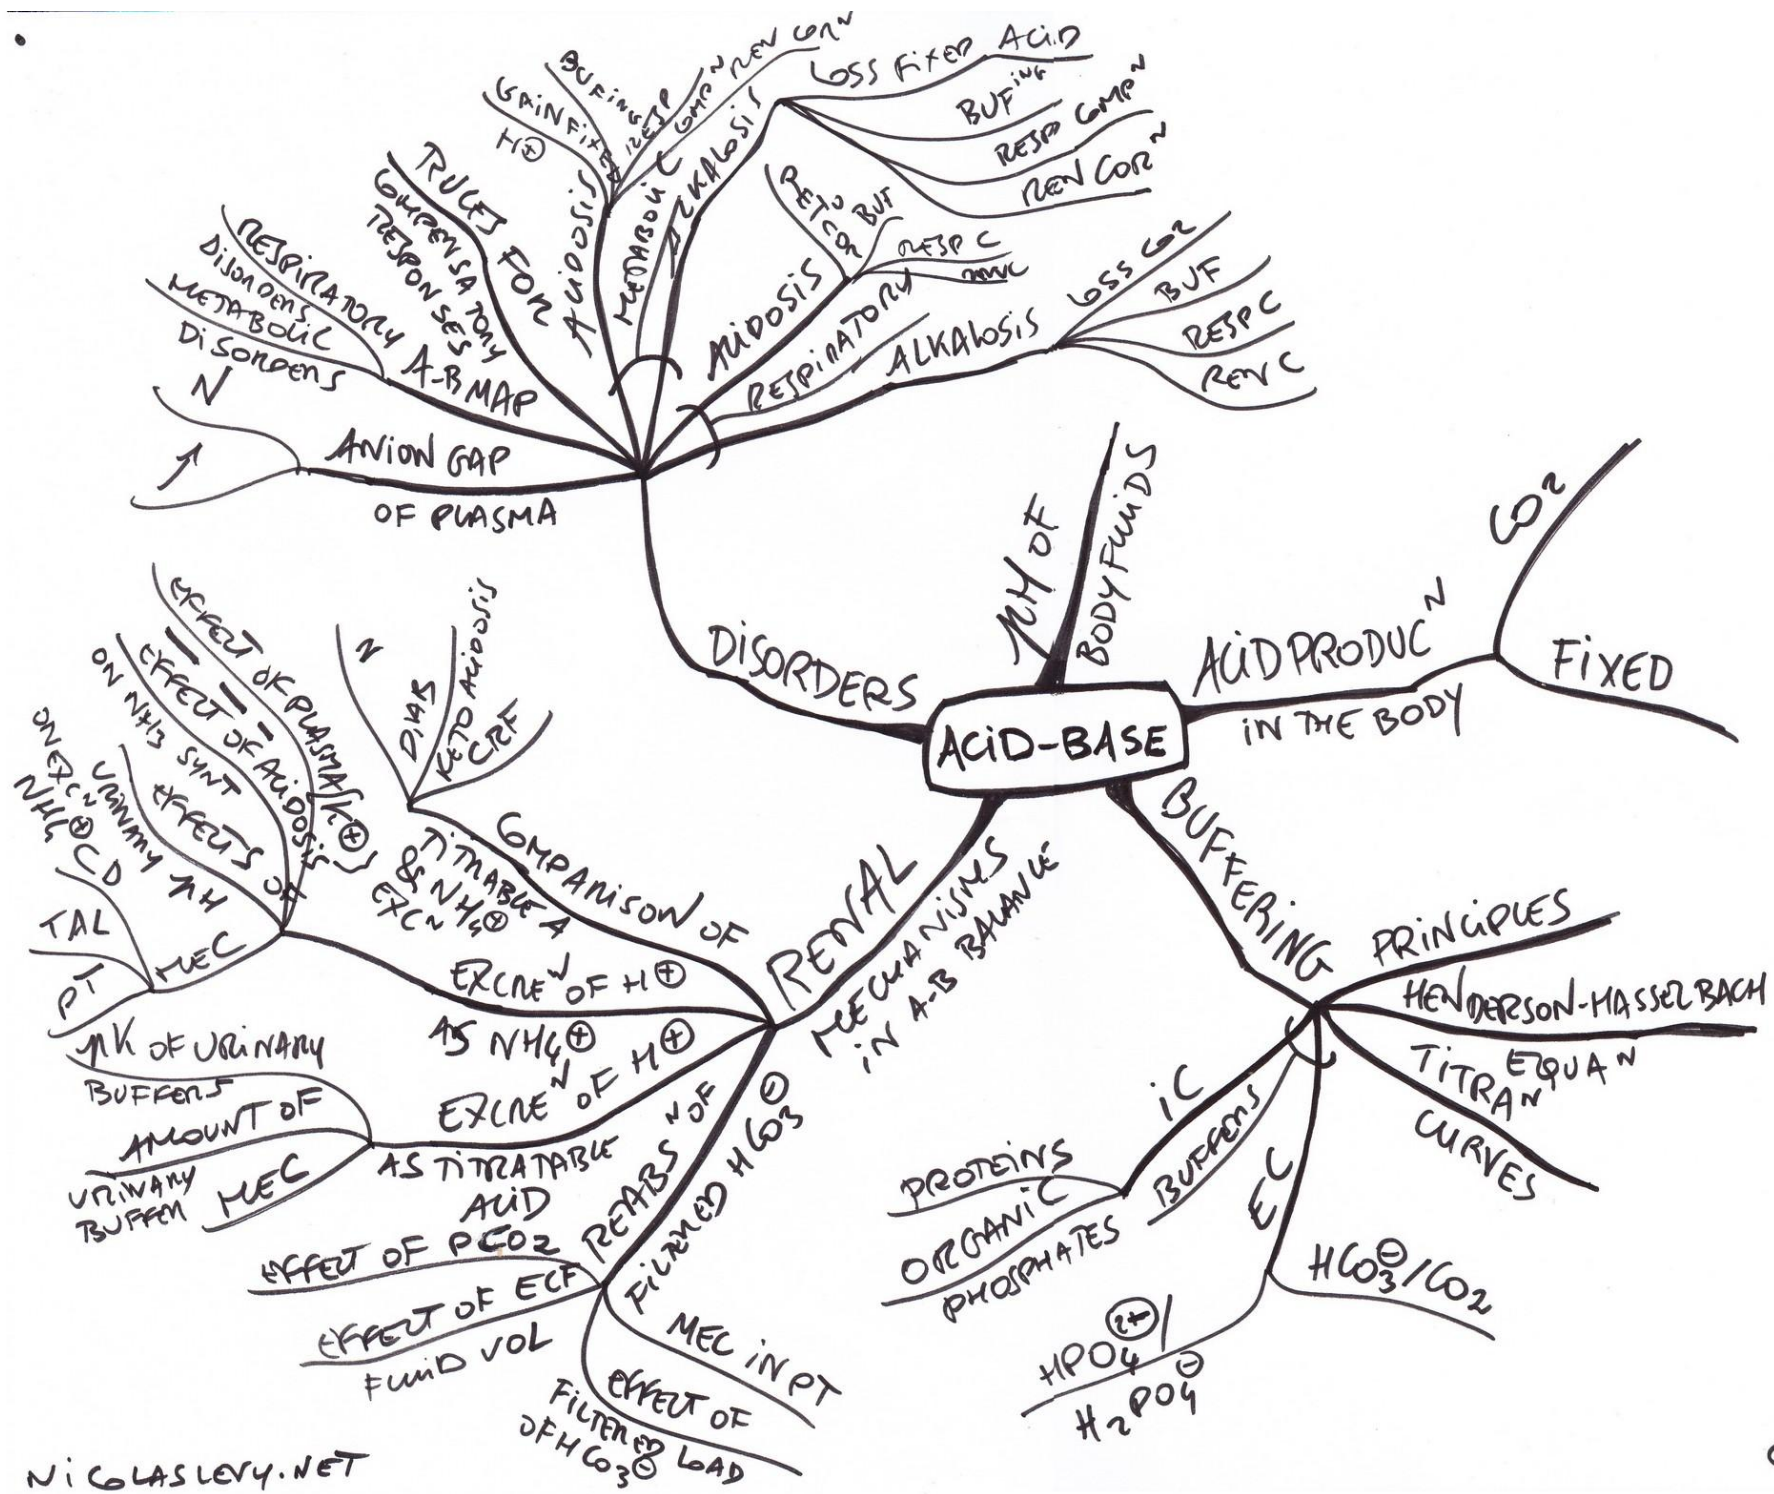 ACID-BASE
pH OF
BODY FLUIDS
ACID PRODUC^N
IN THE BODY
CO2
FIXED
BUFFERING
PRINCIPLES
HENDERSON-HASSELBACH
EQUA^N
TITRA^N
CURVES
IC
BUFFERS
EC
PROTEINS
ORGANIC
PHOSPHATES
HCO3⊖/CO2
HPO4(2+)/
H2PO4⊖
RENAL
MECHANISMS
IN A-B BALANCE
REABS^N OF
FILTERED HCO3⊖
MEC IN PT
EFFECT OF
FILTERED LOAD
OF HCO3⊖
EFFECT OF ECF
FLUID VOL
EFFECT OF PCO2
EXCRE^N OF H⊕
AS TITRATABLE
ACID
MEC
AMOUNT OF
URINARY
BUFFER
pK OF URINARY
BUFFERS
EXCRE^N OF H⊕
AS NH4⊕
MEC
PT
TAL
CD
EFFECTS OF
URINARY pH
ON EXC^N
NH4⊕
EFFECT OF ACIDOSIS
ON NH3 SYNT
EFFECT OF PLASMA [K⊕]
COMPARISON OF
TITRABLE A
& NH4⊕
EXC^N
N
DIAB
KETOACIDOSIS
CRF
DISORDERS
ANION GAP
OF PLASMA
N
↑
A-B MAP
METABOLIC
DISORDERS
RESPIRATORY
DISORDERS
RULES FOR
COMPENSATORY
RESPONSES
METABOLIC
ACIDOSIS
GAIN FIXED
H⊕
BUFING
RESP
COMP^N
REN COR^N
ALKALOSIS
LOSS FIXED ACID
BUF^ING
RESP COMP^N
REN COR^N
RESPIRATORY
ACIDOSIS
BUF
RESP C
ALKALOSIS
LOSS CO2
BUF
RESP C
REN C
NICOLASLEVY.NET